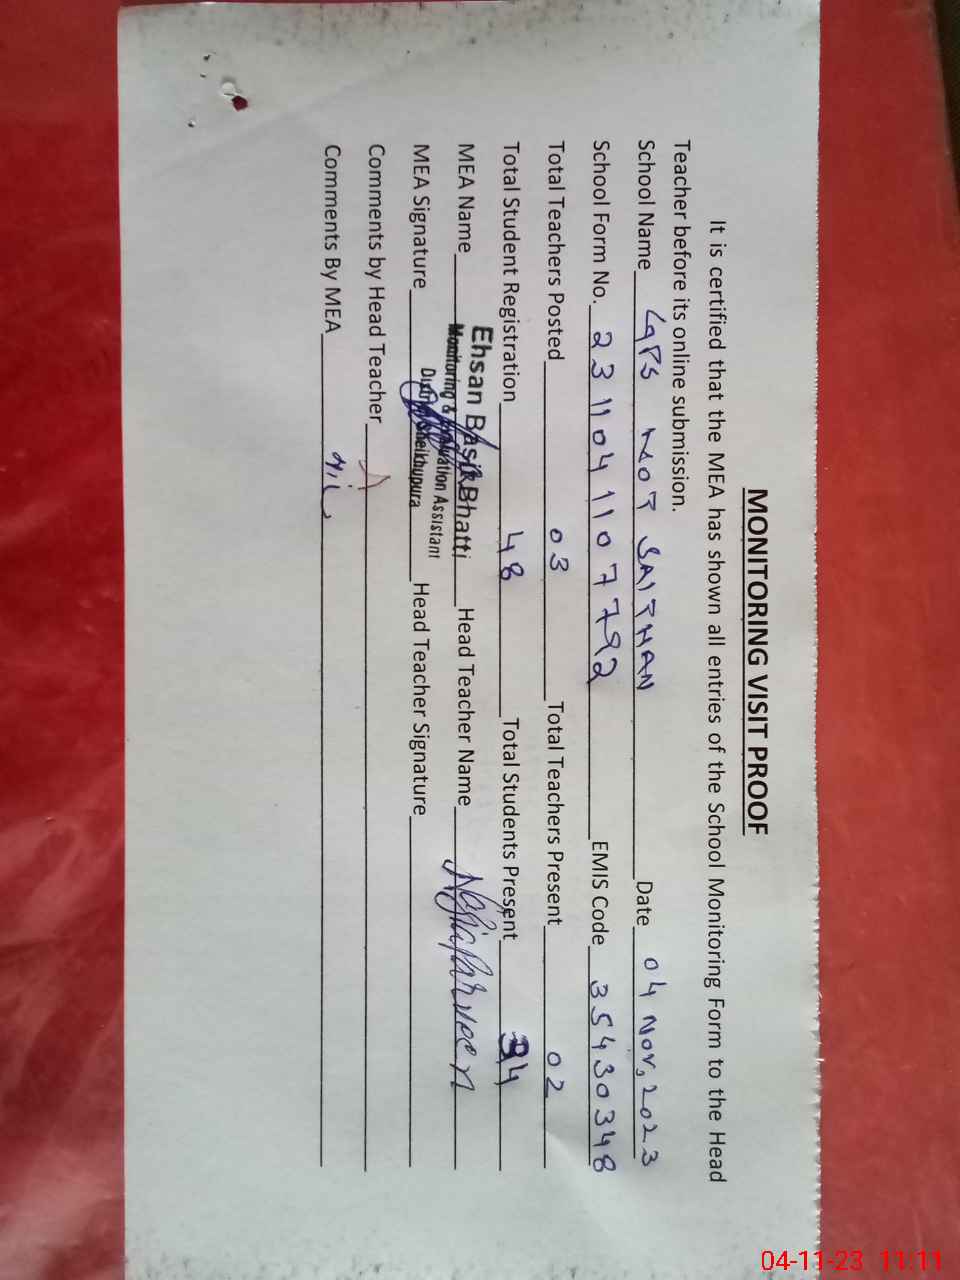 MONITORING VISIT PROOF
It is certified that the MEA has shown all entries of the School Monitoring Form to the Head
Teacher before its online submission.
School Name GPS KOT SAITHAN Date 04 Nov, 2023
School Form No. 2311041107792 EMIS Code 35430348
Total Teachers Posted 03 Total Teachers Present 02
Total Student Registration 48 Total Students Present 34
MEA Name Ehsan Basir Bhatti Head Teacher Name Najia Parveen
Monitoring & Evaluation Assistant
MEA Signature District Sheikhupura Head Teacher Signature
Comments by Head Teacher
Comments By MEA Nil
04-11-23 11:11